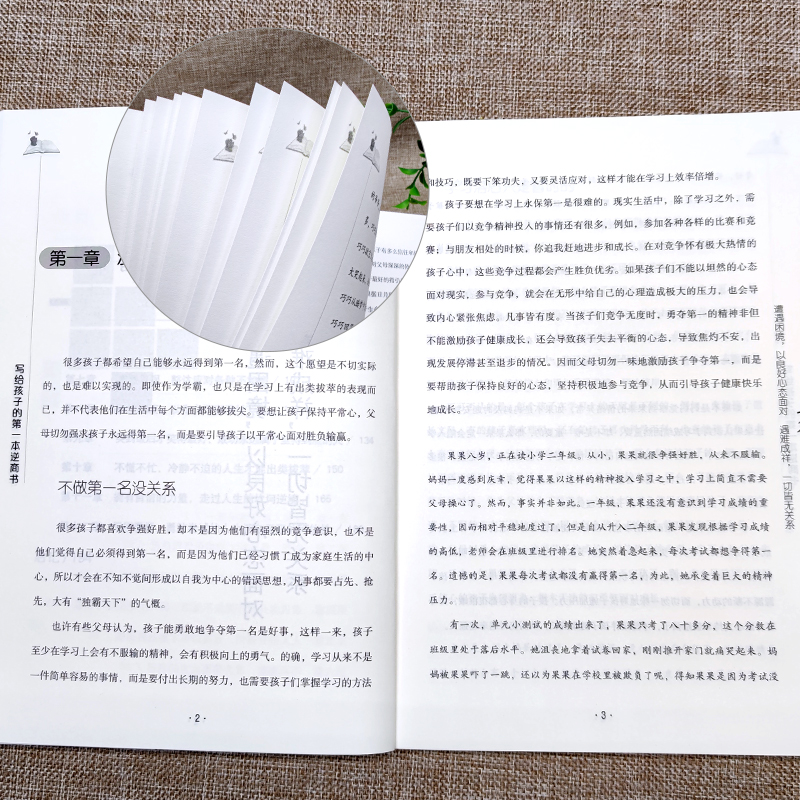 写给孩子的第一本逆商书
第一章
很多孩子都希望自己能够永远得到第一名，然而，这个愿望是不切实际
的，也是难以实现的。即使作为学霸，也只是在学习上有出类拔萃的表现而
已，并不代表他们在生活中每个方面都能够拔尖。要想让孩子保持平常心，父
母切勿强求孩子永远得第一名，而是要引导孩子以平常心面对胜负输赢。
不做第一名没关系
很多孩子都喜欢争强好胜，却不是因为他们有强烈的竞争意识，也不是
他们觉得自己必须得到第一名，而是因为他们已经习惯了成为家庭生活的中
心，所以才会在不知不觉间形成以自我为中心的错误思想，凡事都要占先、抢
先，大有“独霸天下”的气概。
也许有些父母认为，孩子能勇敢地争夺第一名是好事，这样一来，孩子
至少在学习上会有不服输的精神，会有积极向上的勇气。的确，学习从来不是
一件简单容易的事情，而是要付出长期的努力，也需要孩子们掌握学习的方法
·2·
和技巧，既要下笨功夫，又要灵活应对，这样才能在学习上效率倍增。
孩子要想在学习上永保第一是很难的。现实生活中，除了学习之外，需
要孩子们以竞争精神投入的事情还有很多，例如，参加各种各样的比赛和竞
赛；与朋友相处的时候，你追我赶地进步和成长。在对竞争怀有极大热情的
孩子心中，这些竞争过程都会产生胜负优劣。如果孩子们不能以坦然的心态
面对现实，参与竞争，就会在无形中给自己的心理造成极大的压力，也会导
致内心紧张焦虑。凡事皆有度。当孩子们竞争无度时，勇夺第一的精神非但
不能激励孩子健康成长，还会导致孩子失去平衡的心态，导致焦灼不安，出
现发展停滞甚至退步的情况。因而父母切勿一味地激励孩子争夺第一，而是
要帮助孩子保持良好的心态，坚持积极地参与竞争，从而引导孩子健康快乐
地成长。
果果八岁，正在读小学二年级。从小，果果就很争强好胜，从来不服输。
妈妈一度感到庆幸，觉得果果以这样的精神投入学习之中，学习上简直不需要
父母操心了。然而，事实并非如此。一年级，果果还没有意识到学习成绩的重
要性，因而相对平稳地度过了，但是自从升入二年级，果果发现根据学习成绩
的高低，老师会在班级里进行排名。她突然着急起来，每次考试都想争得第一
名。遗憾的是，果果每次考试都没有赢得第一名，为此，她承受着巨大的精神
压力。
有一次，单元小测试的成绩出来了，果果只考了八十多分，这个分数在
班级里处于落后水平。她沮丧地拿着试卷回家，刚刚推开家门就痛哭起来。妈
妈被果果吓了一跳，还以为果果在学校里被欺负了呢，得知果果是因为考试没
·3·
遭遇困境，以良好心态面对 遇难成祥，一切皆无关系